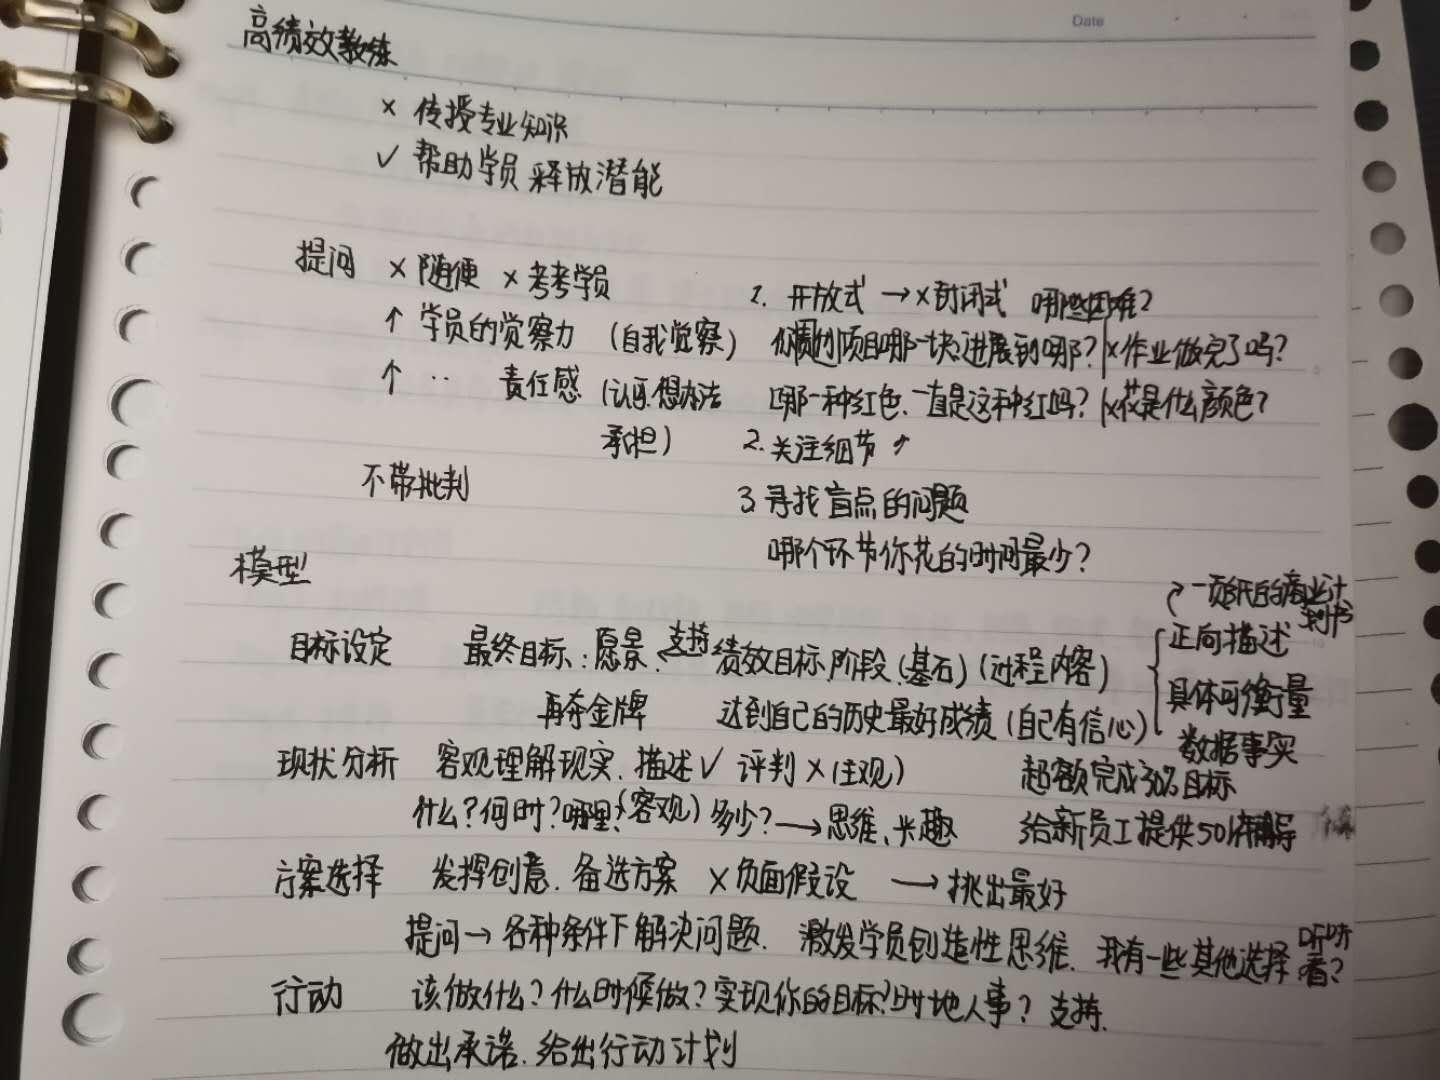 Date
高绩效教练
× 传授专业知识
✓ 帮助学员释放潜能
提问 × 随便 × 考考学员
↑ 学员的觉察力 (自我觉察)
↑ ‥ 责任感 (认可.想办法
承担)
不带批判
1. 开放式 → ×封闭式 哪些困难?
你周边项目哪一块,进展到哪? | ×作业做完了吗?
哪一种红色、一直是这种红吗? | ×花是什么颜色?
2. 关注细节
3 寻找盲点的问题
哪个环节你花的时间最少?
模型
一页纸的商业计
划书
目标设定 最终目标:愿景、支持 绩效目标,阶段(基石)(过程内容)
正向描述
具体可衡量
数据事实
再夺金牌 达到自己的历史最好成绩(自己有信心)
现状分析 客观理解现实、描述✓ 评判×(主观) 超额完成30%目标
什么?何时?哪里?(客观)多少?→思维、兴趣 给新员工提供50小时辅导
方案选择 发挥创意、备选方案 ×负面假设 → 挑出最好
提问→各种条件下解决问题. 激发学员创造性思维、我有一些其他选择 听听
看?
行动 该做什么?什么时候做?实现你的目标?时地人事?支持.
做出承诺.给出行动计划